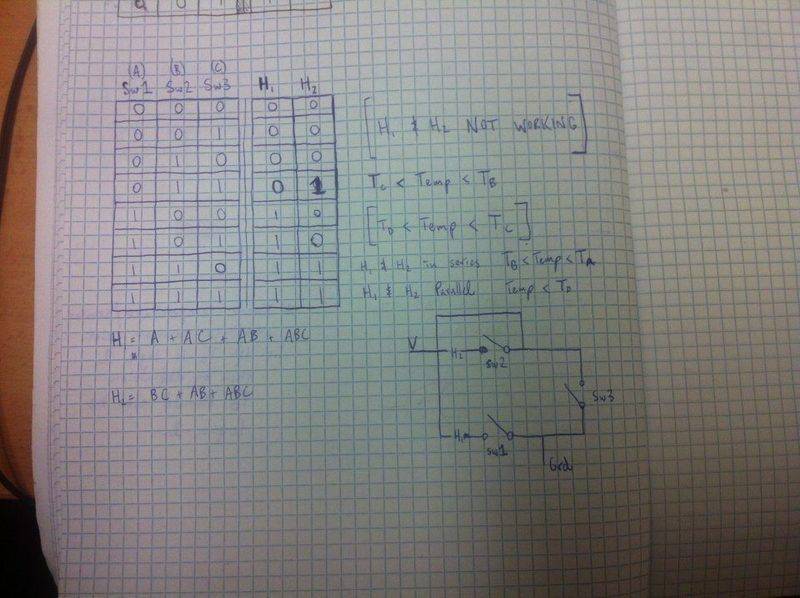 0 0 1 1
(A) (B) (C)
SW1 SW2 SW3 H1 H2
0 0 0 0 0
0 0 1 0 0
0 1 0 0 0
0 1 1 0 1
1 0 0 1 0
1 0 1 1 0
1 1 0 1 1
1 1 1 1 1
[H1 & H2 NOT WORKING]
TC < Temp < TB
[TD < Temp < TC]
H1 & H2 in series TB < Temp < TA
H1 & H2 Parallel Temp < TD
H1 = A + AC + AB + ABC
H2 = BC + AB + ABC
V
H2
SW2
SW3
H1
SW1
Grd